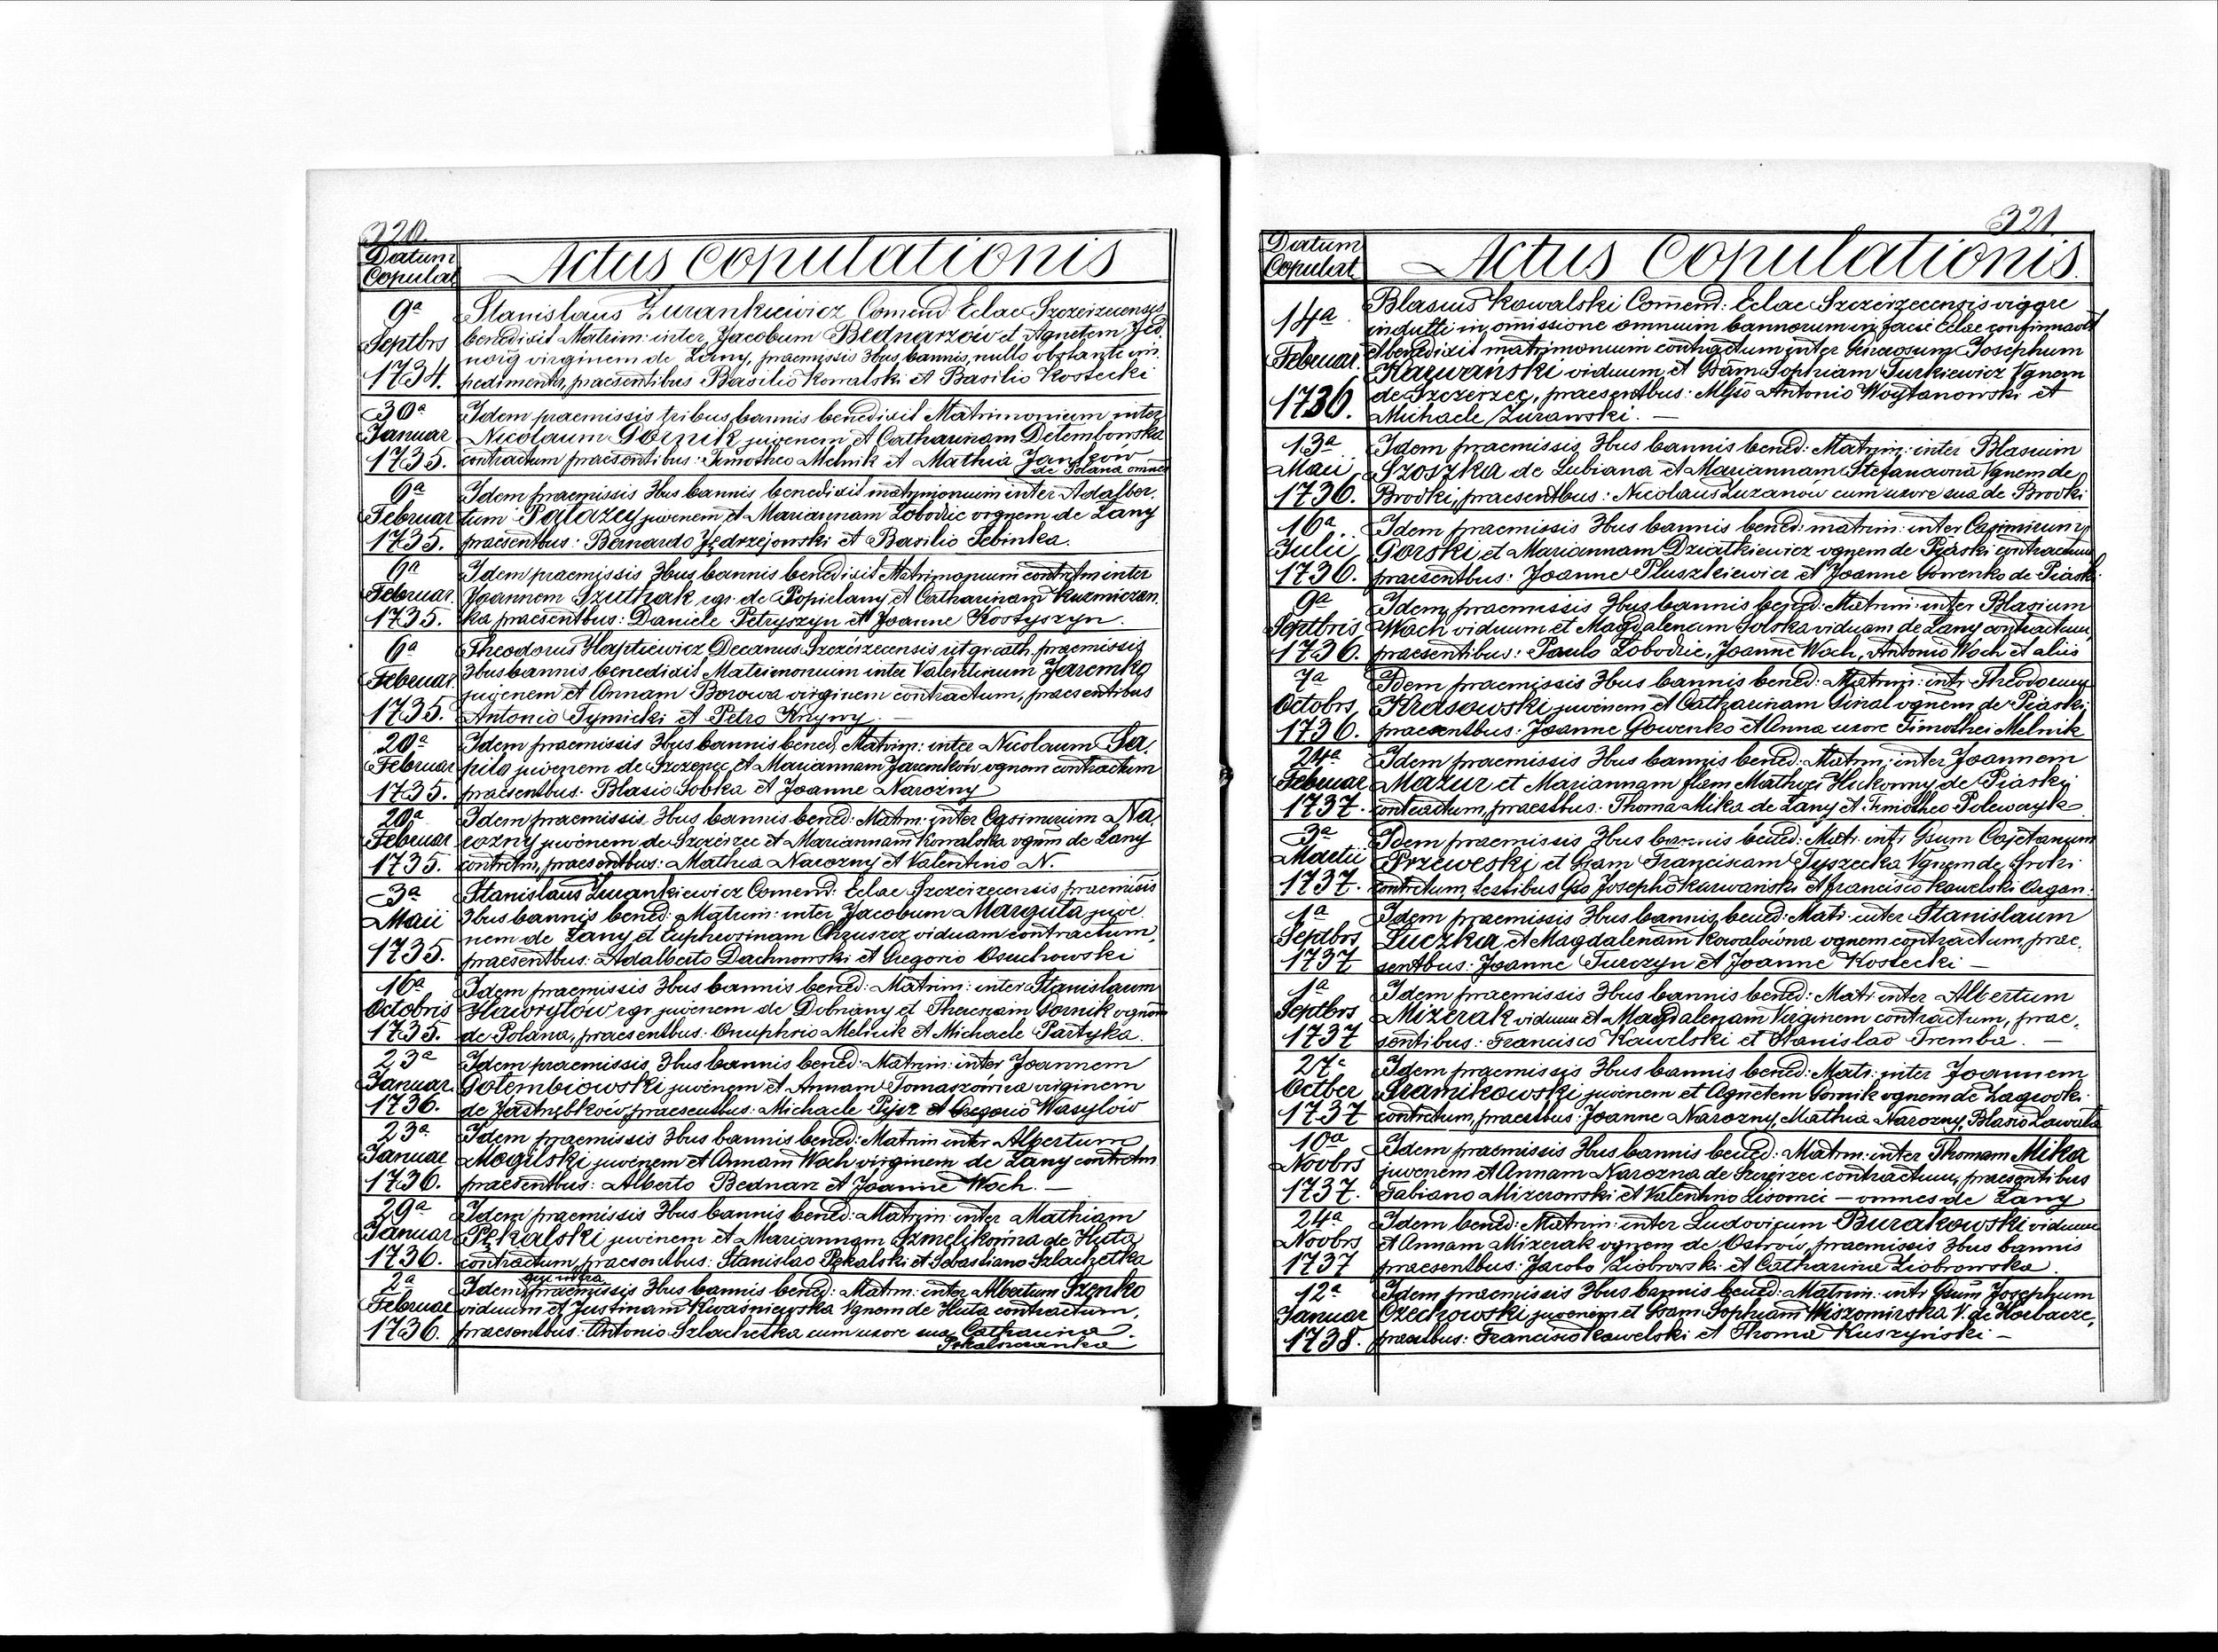 320.
Datum
Copulat
Actus Copulationis
9a
Septbris
1734.
Stanislaus Zurankiewicz Comend Eclae Szczerzecensis
benedixit Matrim: inter Jacobum Bednarzów et Agnetem
virginem de Łany, praemissis 3bus bannis, nullo obstante im
pedimento, praesentibus Basilio Kowalski et Basilio Kostecki
30a
Januar
1735.
Idem praemissis tribus bannis benedixit Matrimonium inter
Nicolaum Gornik juvenem et Catharinam Detembowska
contractum praesentibus: Timotheo Melnik et Mathia Jankow
de Polana omnes
6a
Februar
1735.
Idem praemissis 3bus bannis benedixit matrimonium inter Adalber,
tum Pałazey juvenem et Mariannam Łobodzic vrgnem de Łany
praesentbus: Bernardo Jędrzejowski et Basilio Sebinka.
6a
Februar.
1735.
Idem praemissis 3bus bannis benedixit Matrimonium contrctm inter
Joannem Szuthak rgr. de Popielany et Catharinam Kuzmiczan.
ka praesentbus: Daniele Petryszyn et Joanne Kostyszyn.
6a
Februar.
1735.
Theodorus Haptiewicz Decanus Szczerzecensis rit gr cath. praemissis
3bus bannis benedixit Matrimonium inter Valentinum Jaremko
juvenem et Annam Borowa virginem contractum, praesentibus
Antonio Tymicki et Petro Krzywy. —
20a
Februar
1735.
Idem praemissis 3bus bannis bened, Matrim: inter Nicolaum Sa,
piła juvenem de Szczepec et Mariannam Jaremków vgnem contractum
praesentbus: Blasio Sobka et Joanne Narozny
20a
Februar
1735.
Idem praemissis 3bus bannis bened: Matrm: inter Casimirum Na,
rozny juvenem de Szczerzec et Mariannam Kowalska vgnm de Łany
contrctm, praesentbus: Mathia Narozny et Valentino N.
3a
Maii
1735.
Stanislaus Zurankiewicz Comend: Eclae Szczerzecensis praemissis
3bus bannis bened: Matrim: inter Jacobum Marguta juve
nem de Łany et Euphrosinam Chruszcz viduam contractum,
praesentbus: Adalberto Dachnowski et Gregorio Osuchowski
16a
Octobris
1735.
Idem praemissis 3bus bannis bened: Matrim: inter Stanislaum
Haworyłów rgr juvenem de Dobriany et Theresiam Gornik vrgnem
de Polana, praesentbus: Onuphrio Melnik et Michaele Partyka.
23a
Januar.
1736.
Idem praemissis 3bus bannis bened: Matrim: inter Joannem
Gołembiowski juvenem et Annam Tomaszówna virginem
de Jastrzębków, praesentbus: Michaele Pijor et Gregorio Wasylów
23a
Januar
1736.
Idem praemissis 3bus bannis bened: Matrim inter Albertum
Mogilski juvenem et Annam Woch virginem de Łany contrctm
praesentbus: Alberto Bednarz et Joanne Woch. —
29a
Januar
1736.
Idem praemissis 3bus bannis bened: Matrim: inter Mathiam
Pękalski juvenem et Mariannam Szmelikowna de Huta
contractum, praesentbus: Stanislao Pękalski et Sebastiano Szlachetka
2a
Februar
1736.
qui supra
Idem praemissis 3bus bannis bened: Matrm: inter Albertum Szenko
viduum et Justinam Kwaśniewska Vgnem de Huta contractum,
praesentbus: Antonio Szlachetka cum uxore sua Catharina.
321
Datum
Copulat
Actus Copulationis.
14a
Februar.
1736.
Blasius Kowalski Comend: Eclae Szczerzecensis vigore
indulti in omissione omnium bannorum in facie Eclae confirmavit
et benedixit matrimonium contractum inter Generosum Josephum
Karwański viduum et Gsam Sophiam Turkiewicz Vgnem
de Szczerzec, praesentbus: Mgfo Antonio Woytanowski et
Michaele Zurawski. —
13a
Maii
1736.
Idem praemissis 3bus bannis bened: Matrim: inter Blasium
Szoszka de Lubiana et Mariannam Stefanowna Vgnem de
Brodki, praesentbus: Nicolaus Luzanów cum uxore sua de Brodki
16a
Julii
1736.
Idem praemissis 3bus bannis bened: matrim: inter Casimirum
Gorski et Mariannam Dziatkiewicz vgnem de Piaski contractum
praesentbus: Joanne Pluszkiewicz et Joanne Gowenko de Piaski
9a
Septbris
1736.
Idem praemissis 3bus bannis bened: Matrim: inter Blasium
Woch viduum et Magdalenam Solska viduam de Łany contractum,
praesentibus: Paulo Łobodzic, Joanne Woch, Antonio Woch et aliis
7a
Octobrs
1736.
Idem praemissis 3bus bannis bened: Matrim: intr Theodorum
Krasowski juvenem et Catharinam Ginal vgnem de Piaski
praesentbus: Joanne Gowenko et Anna uxore Timothei Melnik
24a
Februar
1737.
Idem praemissis 3bus bannis bened: Matrm: inter Joannem
Mazur et Mariannam flam Mathaei Huckonny de Piaski
contractum, praestbus: Thoma Mika de Łany et Timotheo Polewayk
3a
Martii
1737.
Idem praemissis 3bus bannis bened: Matr: intr Gsum Cajetanum
Przeweski et Gsam Franciscam Tyszecka Vgnem de
contrctum, testibus Gso Josepho Karwański et Francisco Kawelski Organ:
1a
Septbrs
1737
Idem praemissis 3bus bannis, bened: Matr: inter Stanislaum
Łuczka et Magdalenam Kowalówna vgnem contractum, prae,
sentbus: Joanne Turczyn et Joanne Kostecki —
1a
Septbrs
1737
Idem praemissis 3bus bannis bened: Mat: inter Albertum
Mizerak viduum et Magdalenam Virginem contractum, prae,
sentibus: Francisco Kawelski et Stanislao Tremba. —
27a
Octber
1737
Idem praemissis 3bus bannis bened: Matr: inter Joannem
Sramikowski juvenem et Agnetem Gornik vgnem de Zagrodki
contrctum, praestbus: Joanne Narozny, Mathia Narozny, Blasio Zawada
10a
Novbrs
1737.
Idem praemissis 3bus bannis bened: Matrm: inter Thomam Mika
juvenem et Annam Narozna de Szczerzec contractum, praesentibus
Fabiano Mizerowski et Valentino Lisowicz — omnes de Łany
24a
Novbrs
1737
Idem bened: Matrim: inter Ludovicum Burakowski viduum
et Annam Mizerak vgnem de Ostrów, praemissis 3bus bannis
praesentbus: Jacobo Ziobrowski et Catharina Ziobrowska.
12a
Januar
1738.
Idem praemissis 3bus bannis bened: Matrim: intr Gsum Josephum
Czechowski juvenem et Gsam Sophiam Wiszomirska V. de Horbacze,
praestbus: Francisco Kawelski et Thoma Kuszyński —